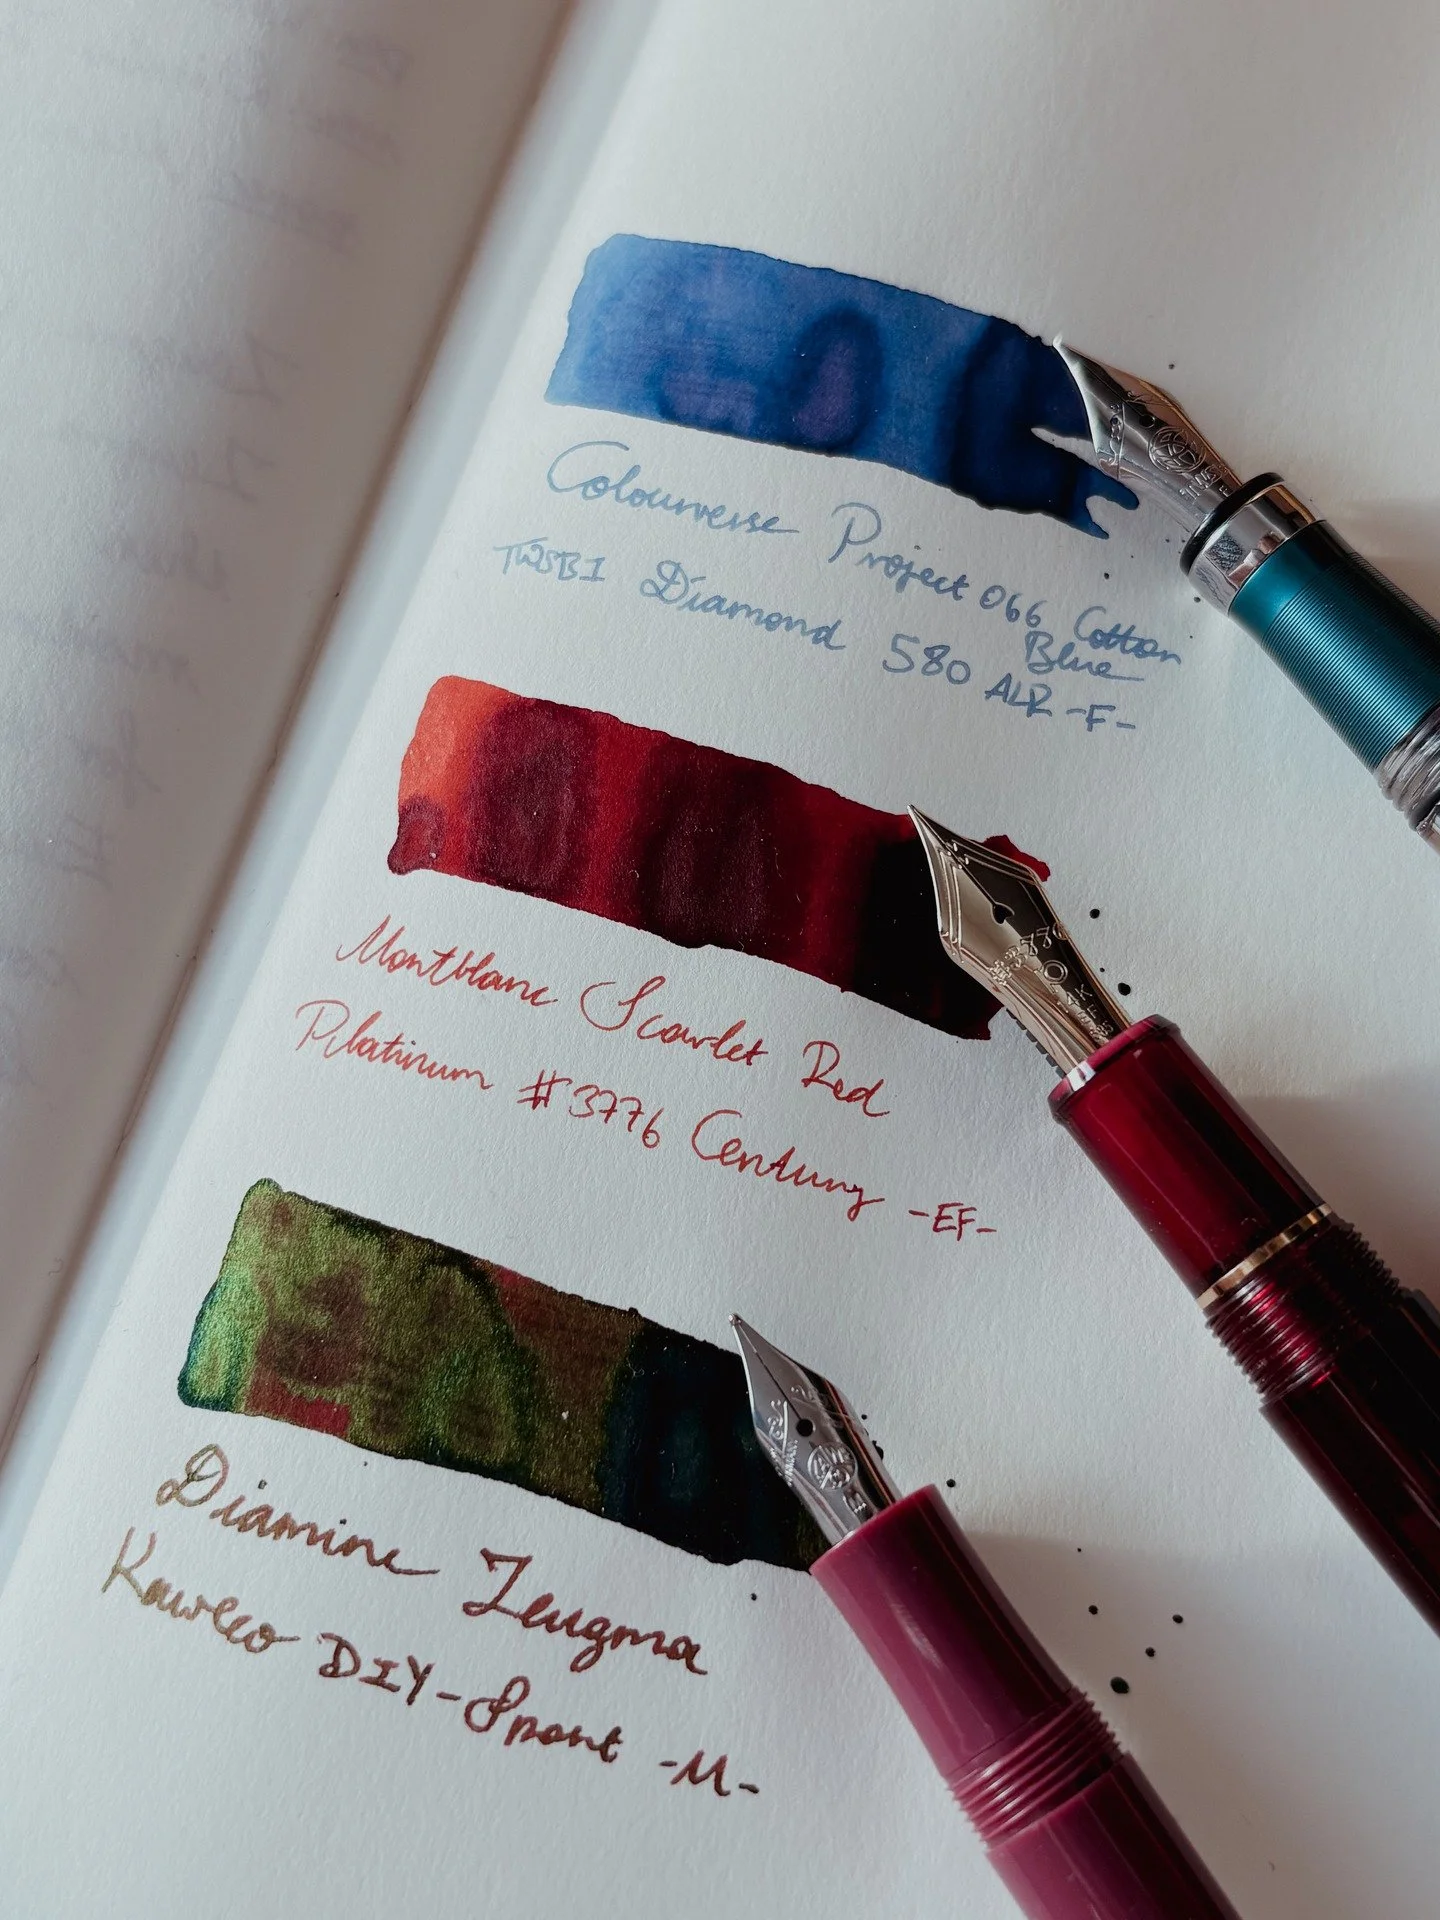 Colourverse Project 066 Cotton
Blue
TWSBI Diamond 580 ALR -F-
Montblanc Scarlet Red
Platinum #3776 Century -EF-
#3776
14K
Diamine Zeugma
Kaweco DIY-Sport -M-